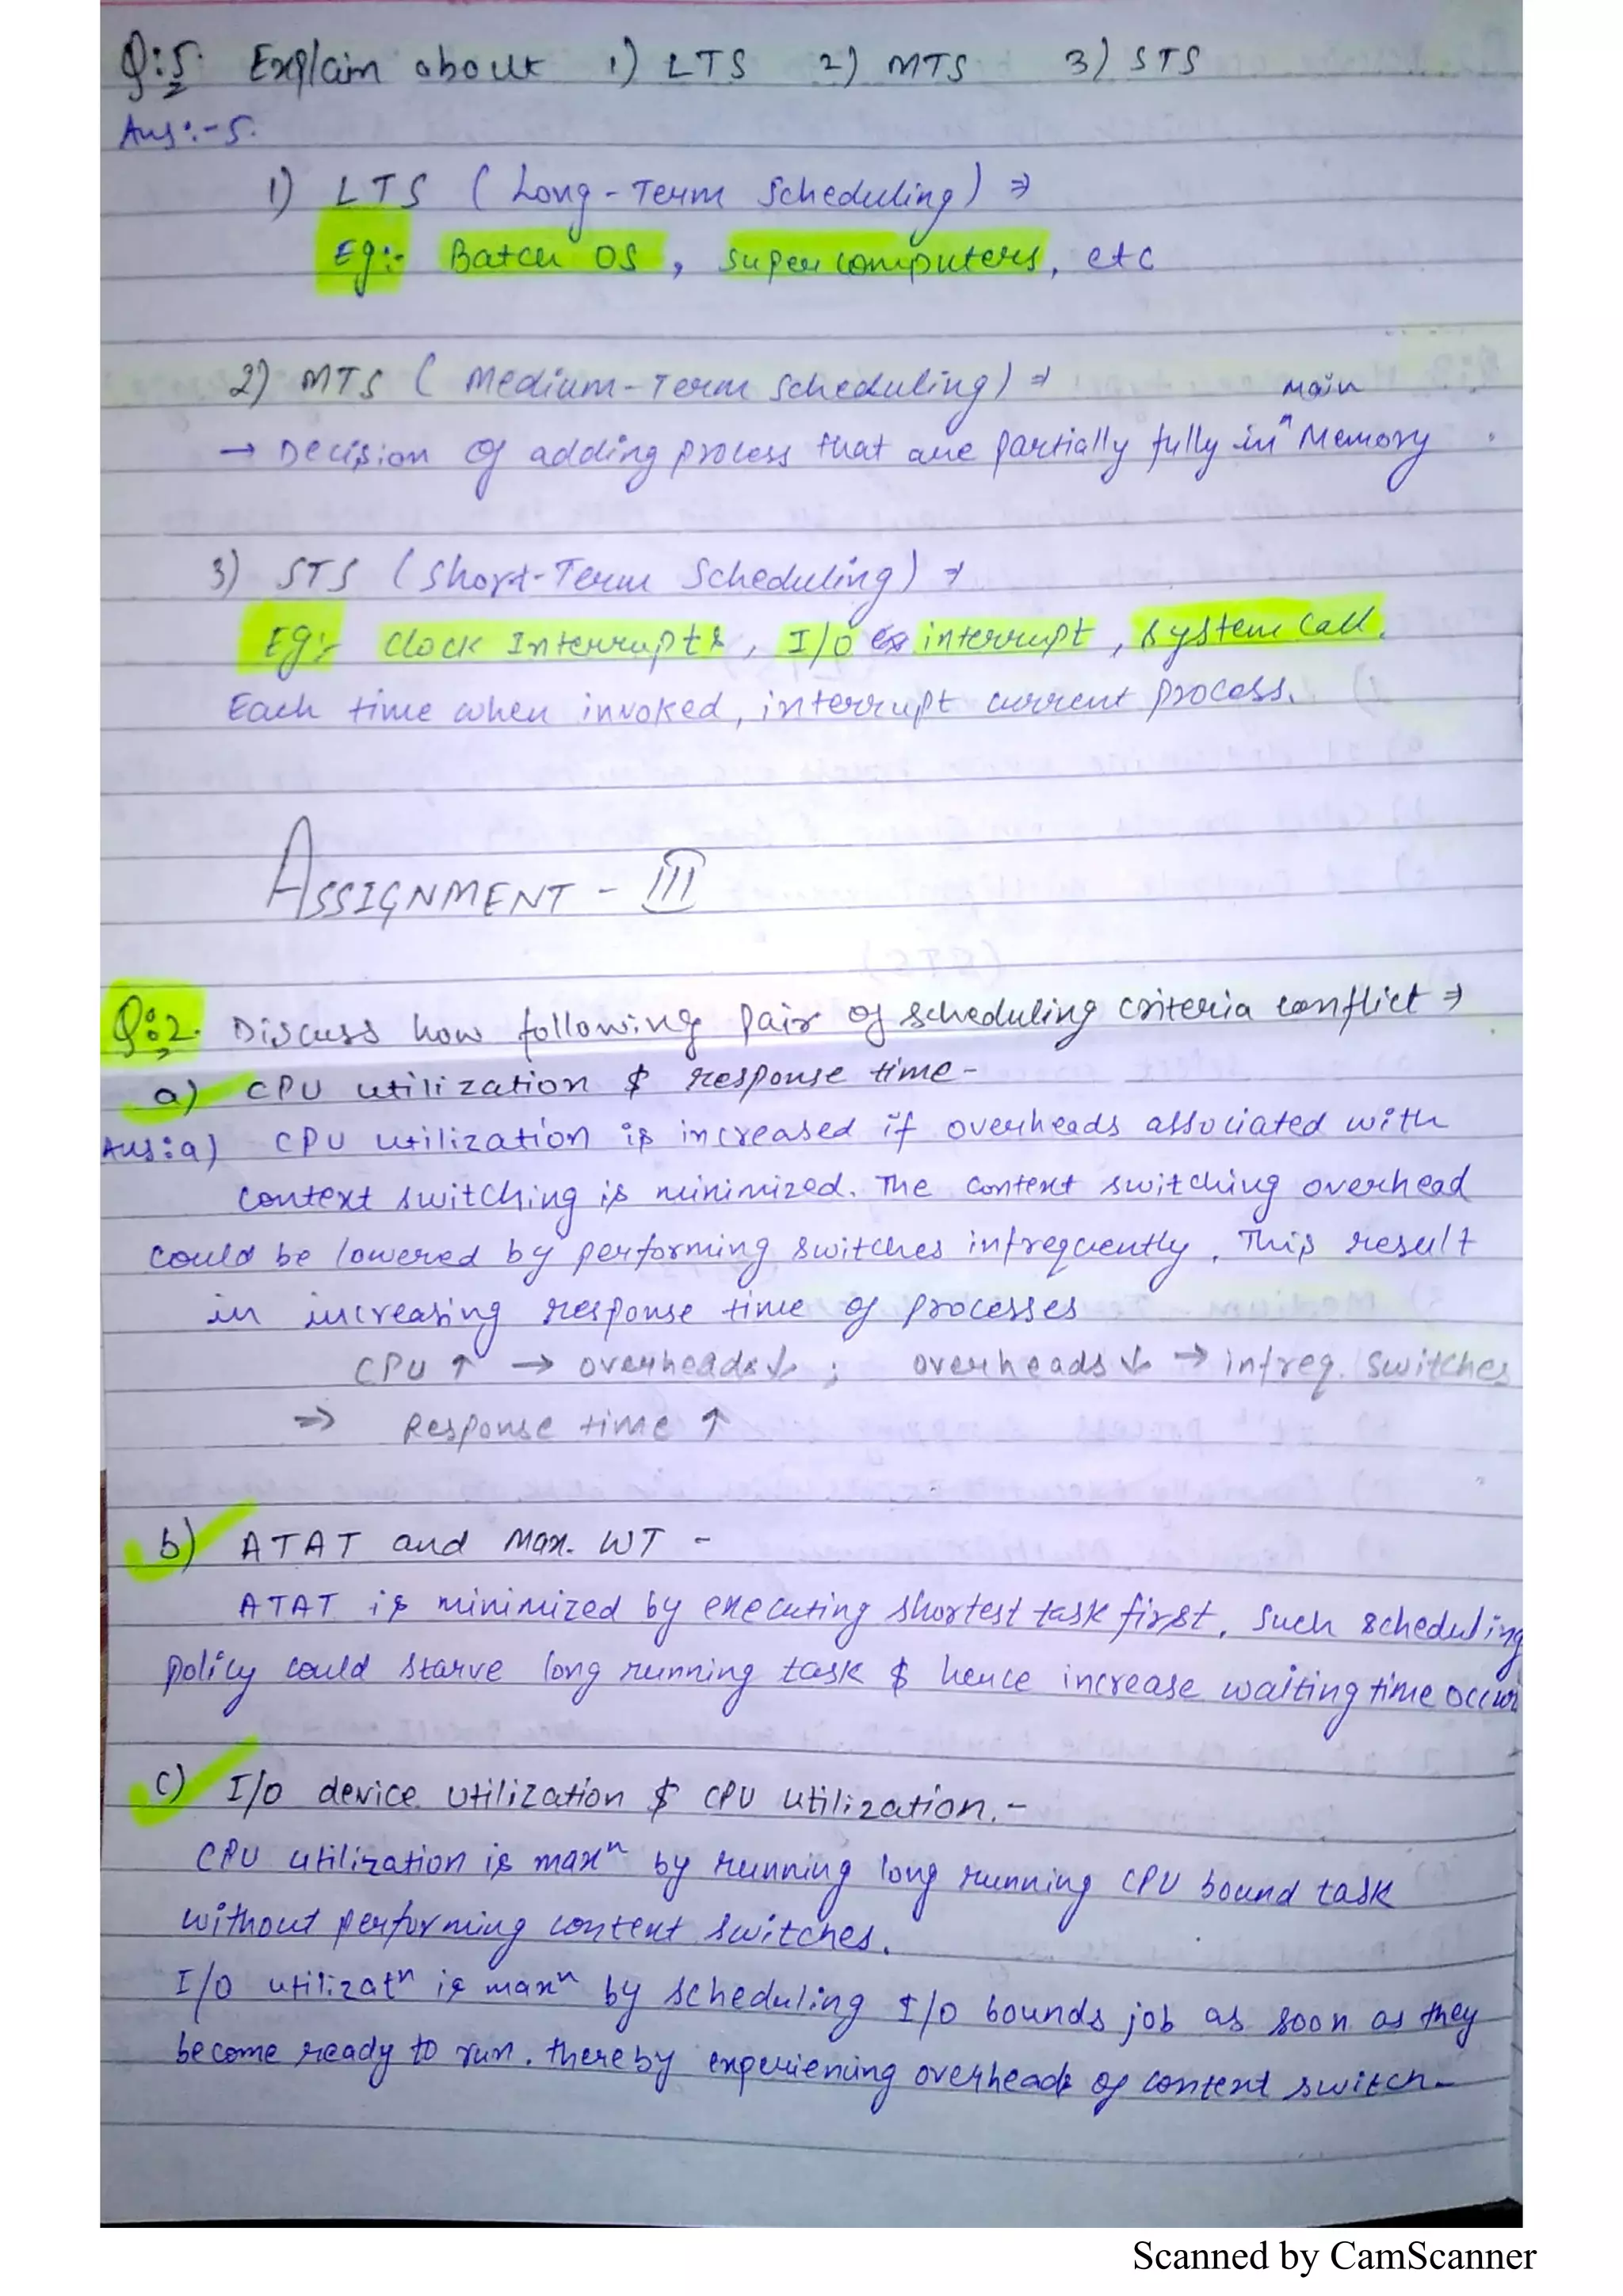 Q:5. Explain about 1) LTS 2) MTS 3) STS
Ans:-5.
1) LTS (Long-Term Scheduling) ⇒
Eg:- Batch OS, Supercomputers, etc
2) MTS (Medium-Term Scheduling) ⇒
→ Decision of adding process that are partially fully in ^ main Memory.
3) STS (Short-Term Scheduling) ⇒
Eg:- Clock Interrupts, I/O interrupt, system call.
Each time when invoked, interrupt current process.
ASSIGNMENT - III
Q:2. Discuss how following pair of scheduling criteria conflict ⇒
a) CPU utilization & response time-
Ans:a) CPU utilization is increased if overheads associated with
context switching is minimized. The context switching overhead
could be lowered by performing switches infrequently. This result
in increasing response time of processes
CPU ↑ → overheads↓ ; overheads↓ → infreq. switches
⇒ Response time ↑
b) ATAT and Max. WT -
ATAT is minimized by executing shortest task first. Such scheduling
policy could starve long running task & hence increase waiting time occur
c) I/O device utilization & CPU utilization.-
CPU utilization is maxⁿ by running long running CPU bound task
without performing context switches.
I/O utilizatⁿ is maxⁿ by scheduling I/O bounds job as soon as they
become ready to run. thereby experiening overheads of context switch-
Scanned by CamScanner